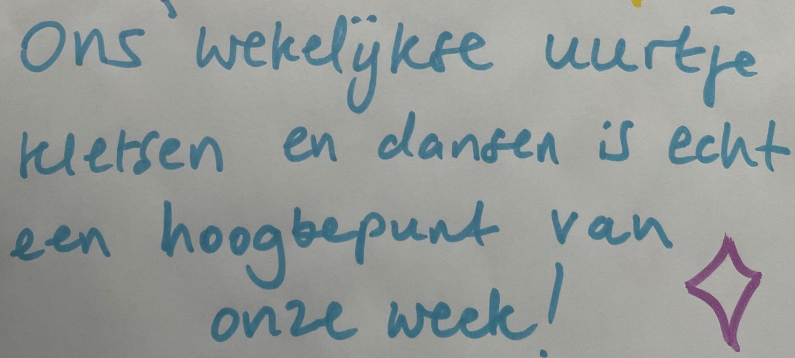 Ons wekelijkse uurtje
kletsen en dansen is echt
een hoogtepunt van
onze week!